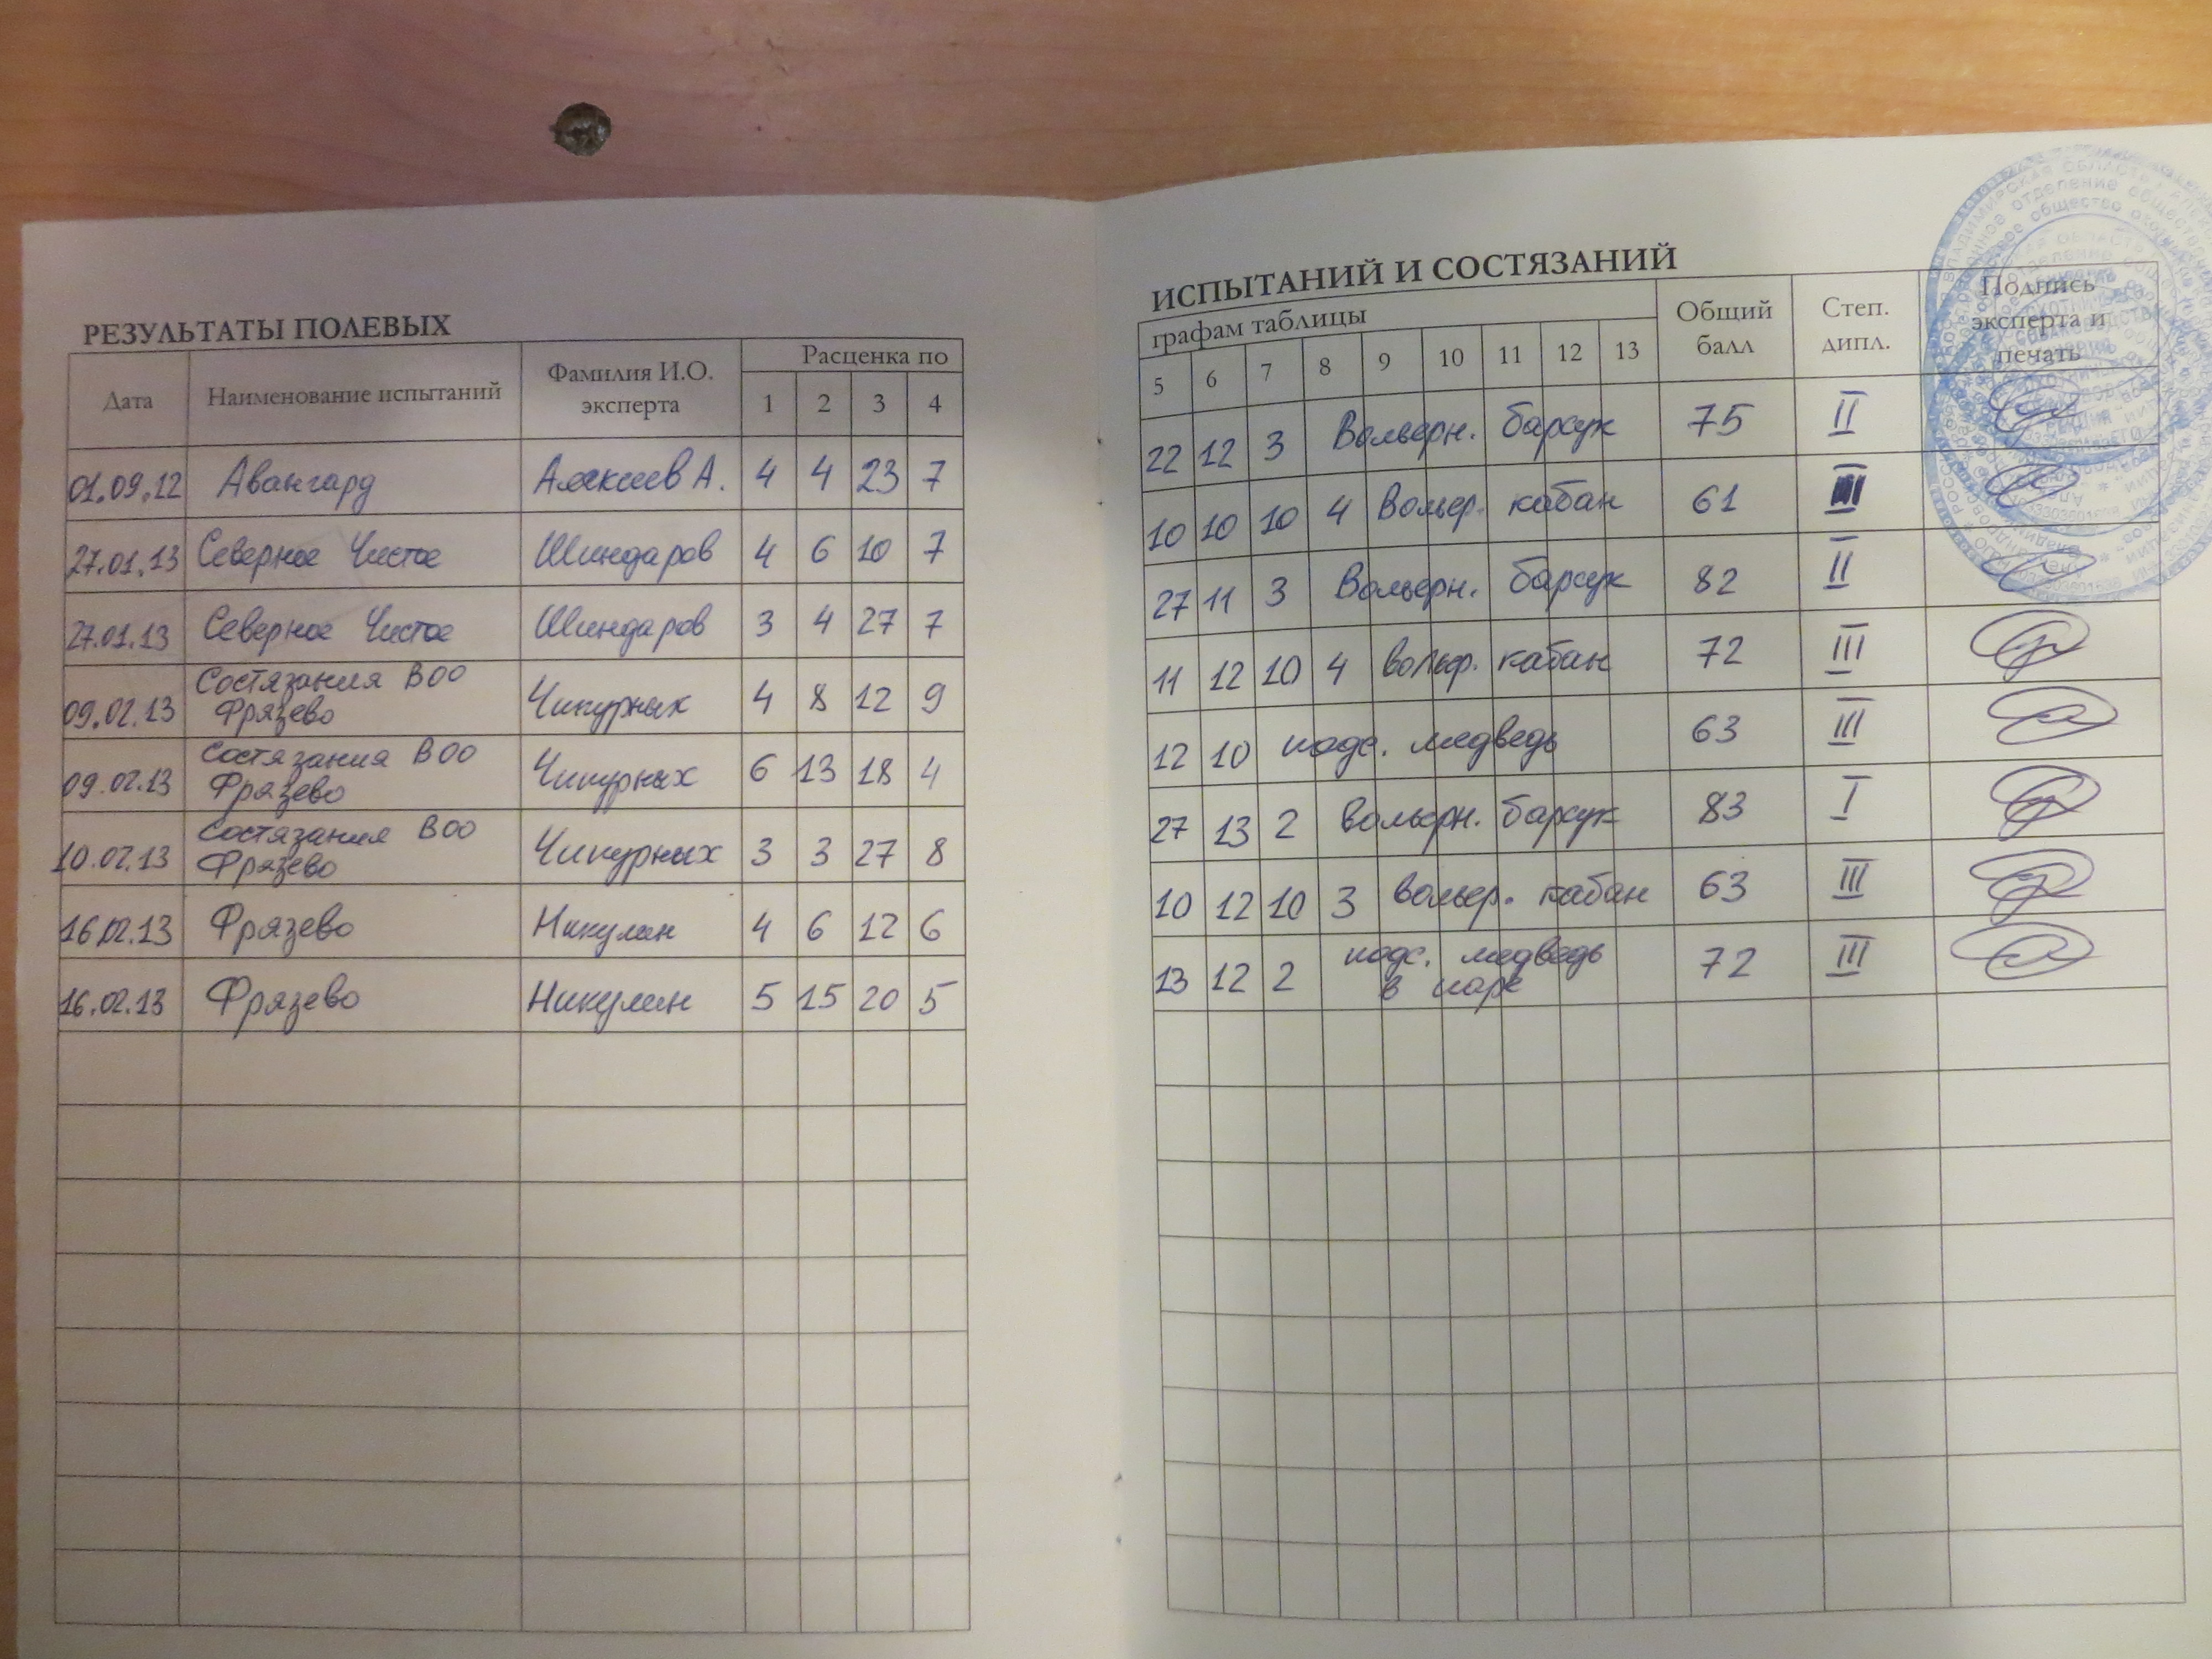 РЕЗУЛЬТАТЫ ПОЛЕВЫХ
Дата Наименование испытаний Фамилия И.О. эксперта Расценка по
1 2 3 4
01.09.12 Авангард Алексеев А. 4 4 23 7
27.01.13 Северное Чистое Шиндаров 4 6 10 7
27.01.13 Северное Чистое Шиндаров 3 4 27 7
Состязания ВОО
09.02.13 Фрязево Чипурных 4 8 12 9
Состязания ВОО
09.02.13 Фрязево Чипурных 6 13 18 4
Состязания ВОО
10.02.13 Фрязево Чипурных 3 3 27 8
16.02.13 Фрязево Никулин 4 6 12 6
16.02.13 Фрязево Никулин 5 15 20 5
ИСПЫТАНИЙ И СОСТЯЗАНИЙ
графам таблицы Общий балл Степ. дипл. Подпись эксперта и печать
5 6 7 8 9 10 11 12 13
22 12 3 Вольерн. барсук 75 II
10 10 10 4 Вольер. кабан 61 III
27 11 3 Вольерн. барсук 82 II
11 12 10 4 вольер. кабан 72 III
12 10 подс. медведь 63 III
27 13 2 вольерн. барсук 83 I
10 12 10 3 вольер. кабан 63 III
13 12 2 подс. медведь 72 III
в паре